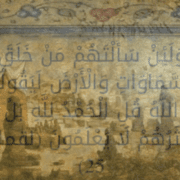 وَلَئِن سَأَلْتَهُم مَّنْ خَلَقَ
السَّمَاوَاتِ وَالْأَرْضَ لَيَقُولُنَّ
اللَّهُ قُلِ الْحَمْدُ لِلَّهِ بَلْ
أَكْثَرُهُمْ لَا يَعْلَمُونَ